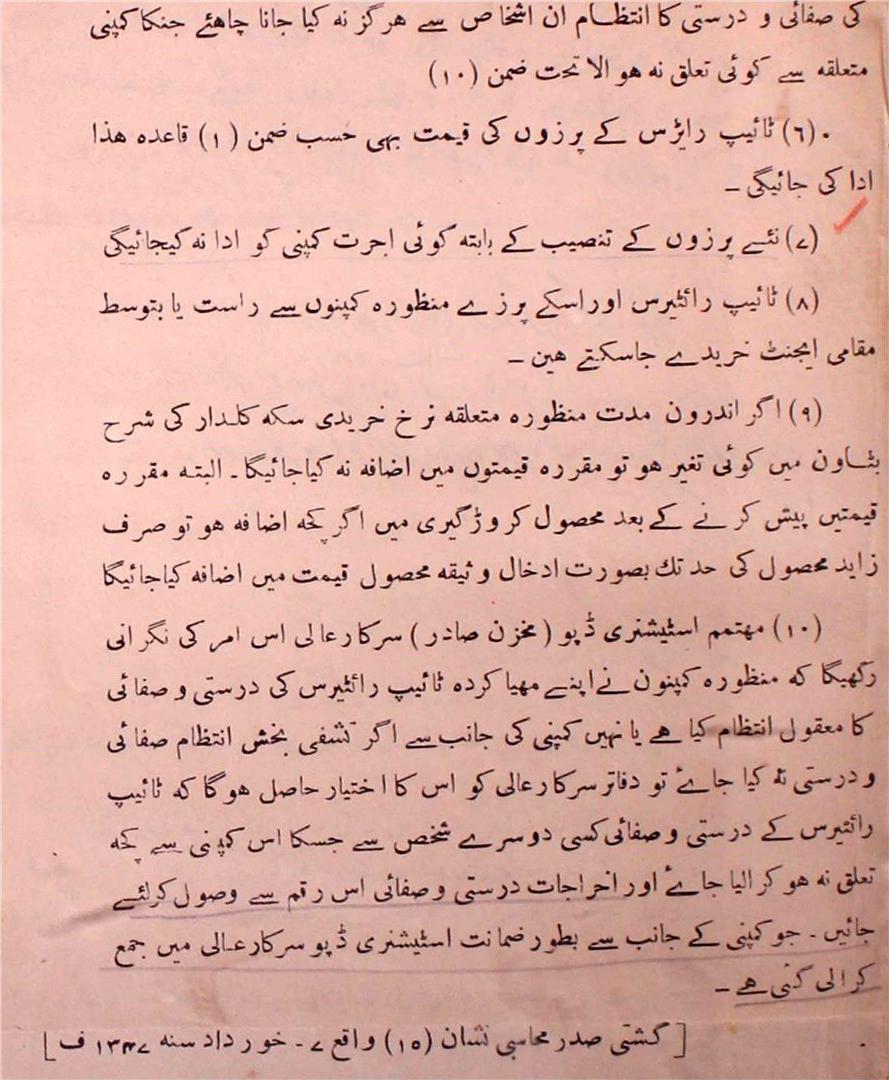 کی صفائی و درستی کا انتظام ان اشخاص سے ھرگز نہ کیا جانا چاھئے جنکا کمپنی
متعلقہ سے کوئی تعلق نہ ھو الا تحت ضمن (۱۰)
(۶) ٹائیپ رایڑس کے پرزوں کی قیمت بھی حسب ضمن (۱) قاعدہ ھذا
ادا کی جائیگی ۔
(۷) نئے پرزوں کے تنصیب کے بابتہ کوئی اجرت کمپنی کو ادا نہ کیجائیگی
(۸) ٹائیپ رائٹیرس اور اسکے پرزے منظورہ کمپنوں سے راست یا بتوسط
مقامی ایجنٹ خریدے جاسکتے ھین ۔
(۹) اگر اندرون مدت منظورہ متعلقہ نرخ خریدی سکہ کلدار کی شرح
بٹاون میں کوئی تغیر ھو تو مقررہ قیمتوں میں اضافہ نہ کیا جائیگا ۔ البتہ مقررہ
قیمتیں پیش کرنے کے بعد محصول کروڑگیری میں اگر کچھ اضافہ ھو تو صرف
زاید محصول کی حد تك بصورت ادخال وثیقہ محصول قیمت میں اضافہ کیا جائیگا
(۱۰) مھتمم اسٹیشنری ڈپو (مخزن صادر) سرکارعالی اس امر کی نگرانی
رکھیگا کہ منظورہ کمپنون نے اپنے مھیا کردہ ٹائیپ رائٹیرس کی درستی و صفائی
کا معقول انتظام کیا ھے یا نہیں کمپنی کی جانب سے اگر تشفی بخش انتظام صفائی
و درستی نہ کیا جاۓ تو دفاتر سرکارعالی کو اس کا اختیار حاصل ھوگا کہ ٹائیپ
رائٹیرس کے درستی و صفائی کسی دوسرے شخص سے جسکا اس کمپنی سے کچھ
تعلق نہ ھو کرالیا جاۓ اور اخراجات درستی و صفائی اس رقم سے وصول کرلئے
جائیں ۔ جو کمپنی کے جانب سے بطور ضمانت اسٹیشنری ڈپو سرکارعالی میں جمع
کرالی گئی ھے ۔
[ گشتی صدر محاسبی نشان (۱۵) واقع ۷ ۔ خورداد سنہ ۱۳۴۷ ف ]